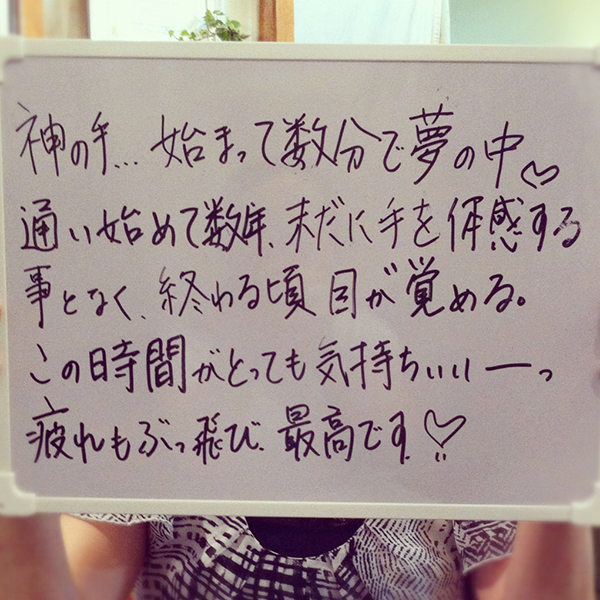 神の手… 始まって数分で夢の中♡
通い始めて数年、未だに手を体感する
事となく、終わる頃目が覚める。
この時間がとっても気持ちいいーっ
疲れもぶっ飛び、最高です♡